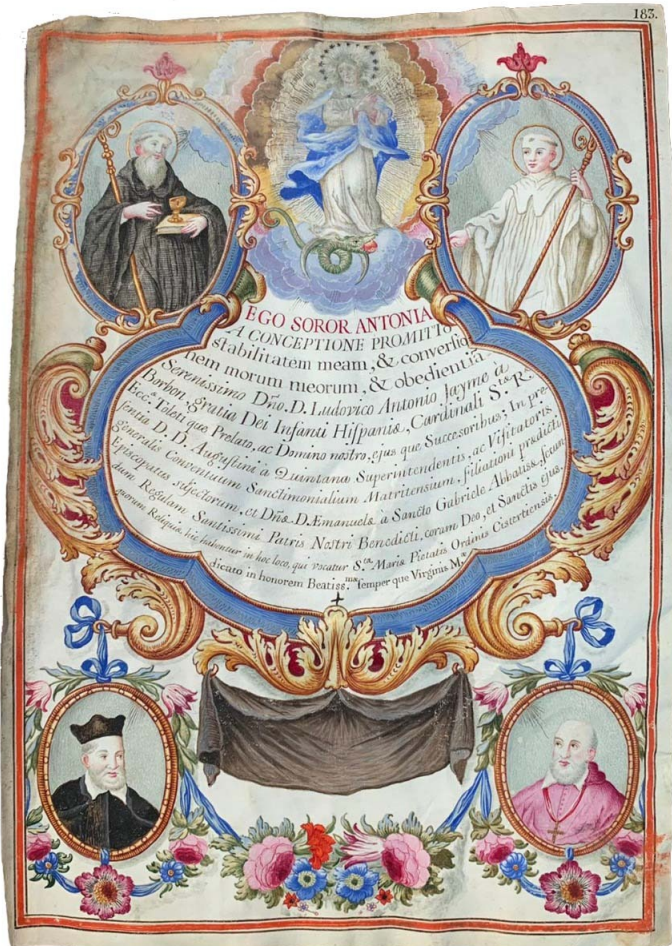 183.
EGO SOROR ANTONIA
A CONCEPTIONE PROMITTO
stabilitatem meam, & conversio
nem morum meorum, & obedientiã
Serenissimo Dño. D. Ludovico Antonio Jayme à
Borbon, gratia Dei Infanti Hispaniæ, Cardinali S.tæ R.æ
Ecc.æ Toleti que Prelato, ac Domino nostro, ejus que Succesoribus; In pre
sentia D. D. Augustini à Quintana Superintendentis, ac Visitatoris
generalis Conventuum Sanctimonialium Matritensium, filiationi prædicti
Episcopatus subjectorum, et Dñæ. D. Æmanuelæ à Sancto Gabriele Abbatissæ, secun
dum Regulam Santissimi Patris Nostri Benedicti, coram Deo, et Sanctis ejus,
quorum Reliquiæ hic habentur in hoc loco, qui vocatur S.tæ Mariæ Pietatis Ordinis Cistertiensis,
dicato in honorem Beatiss.mæ semper que Virginis M.æ